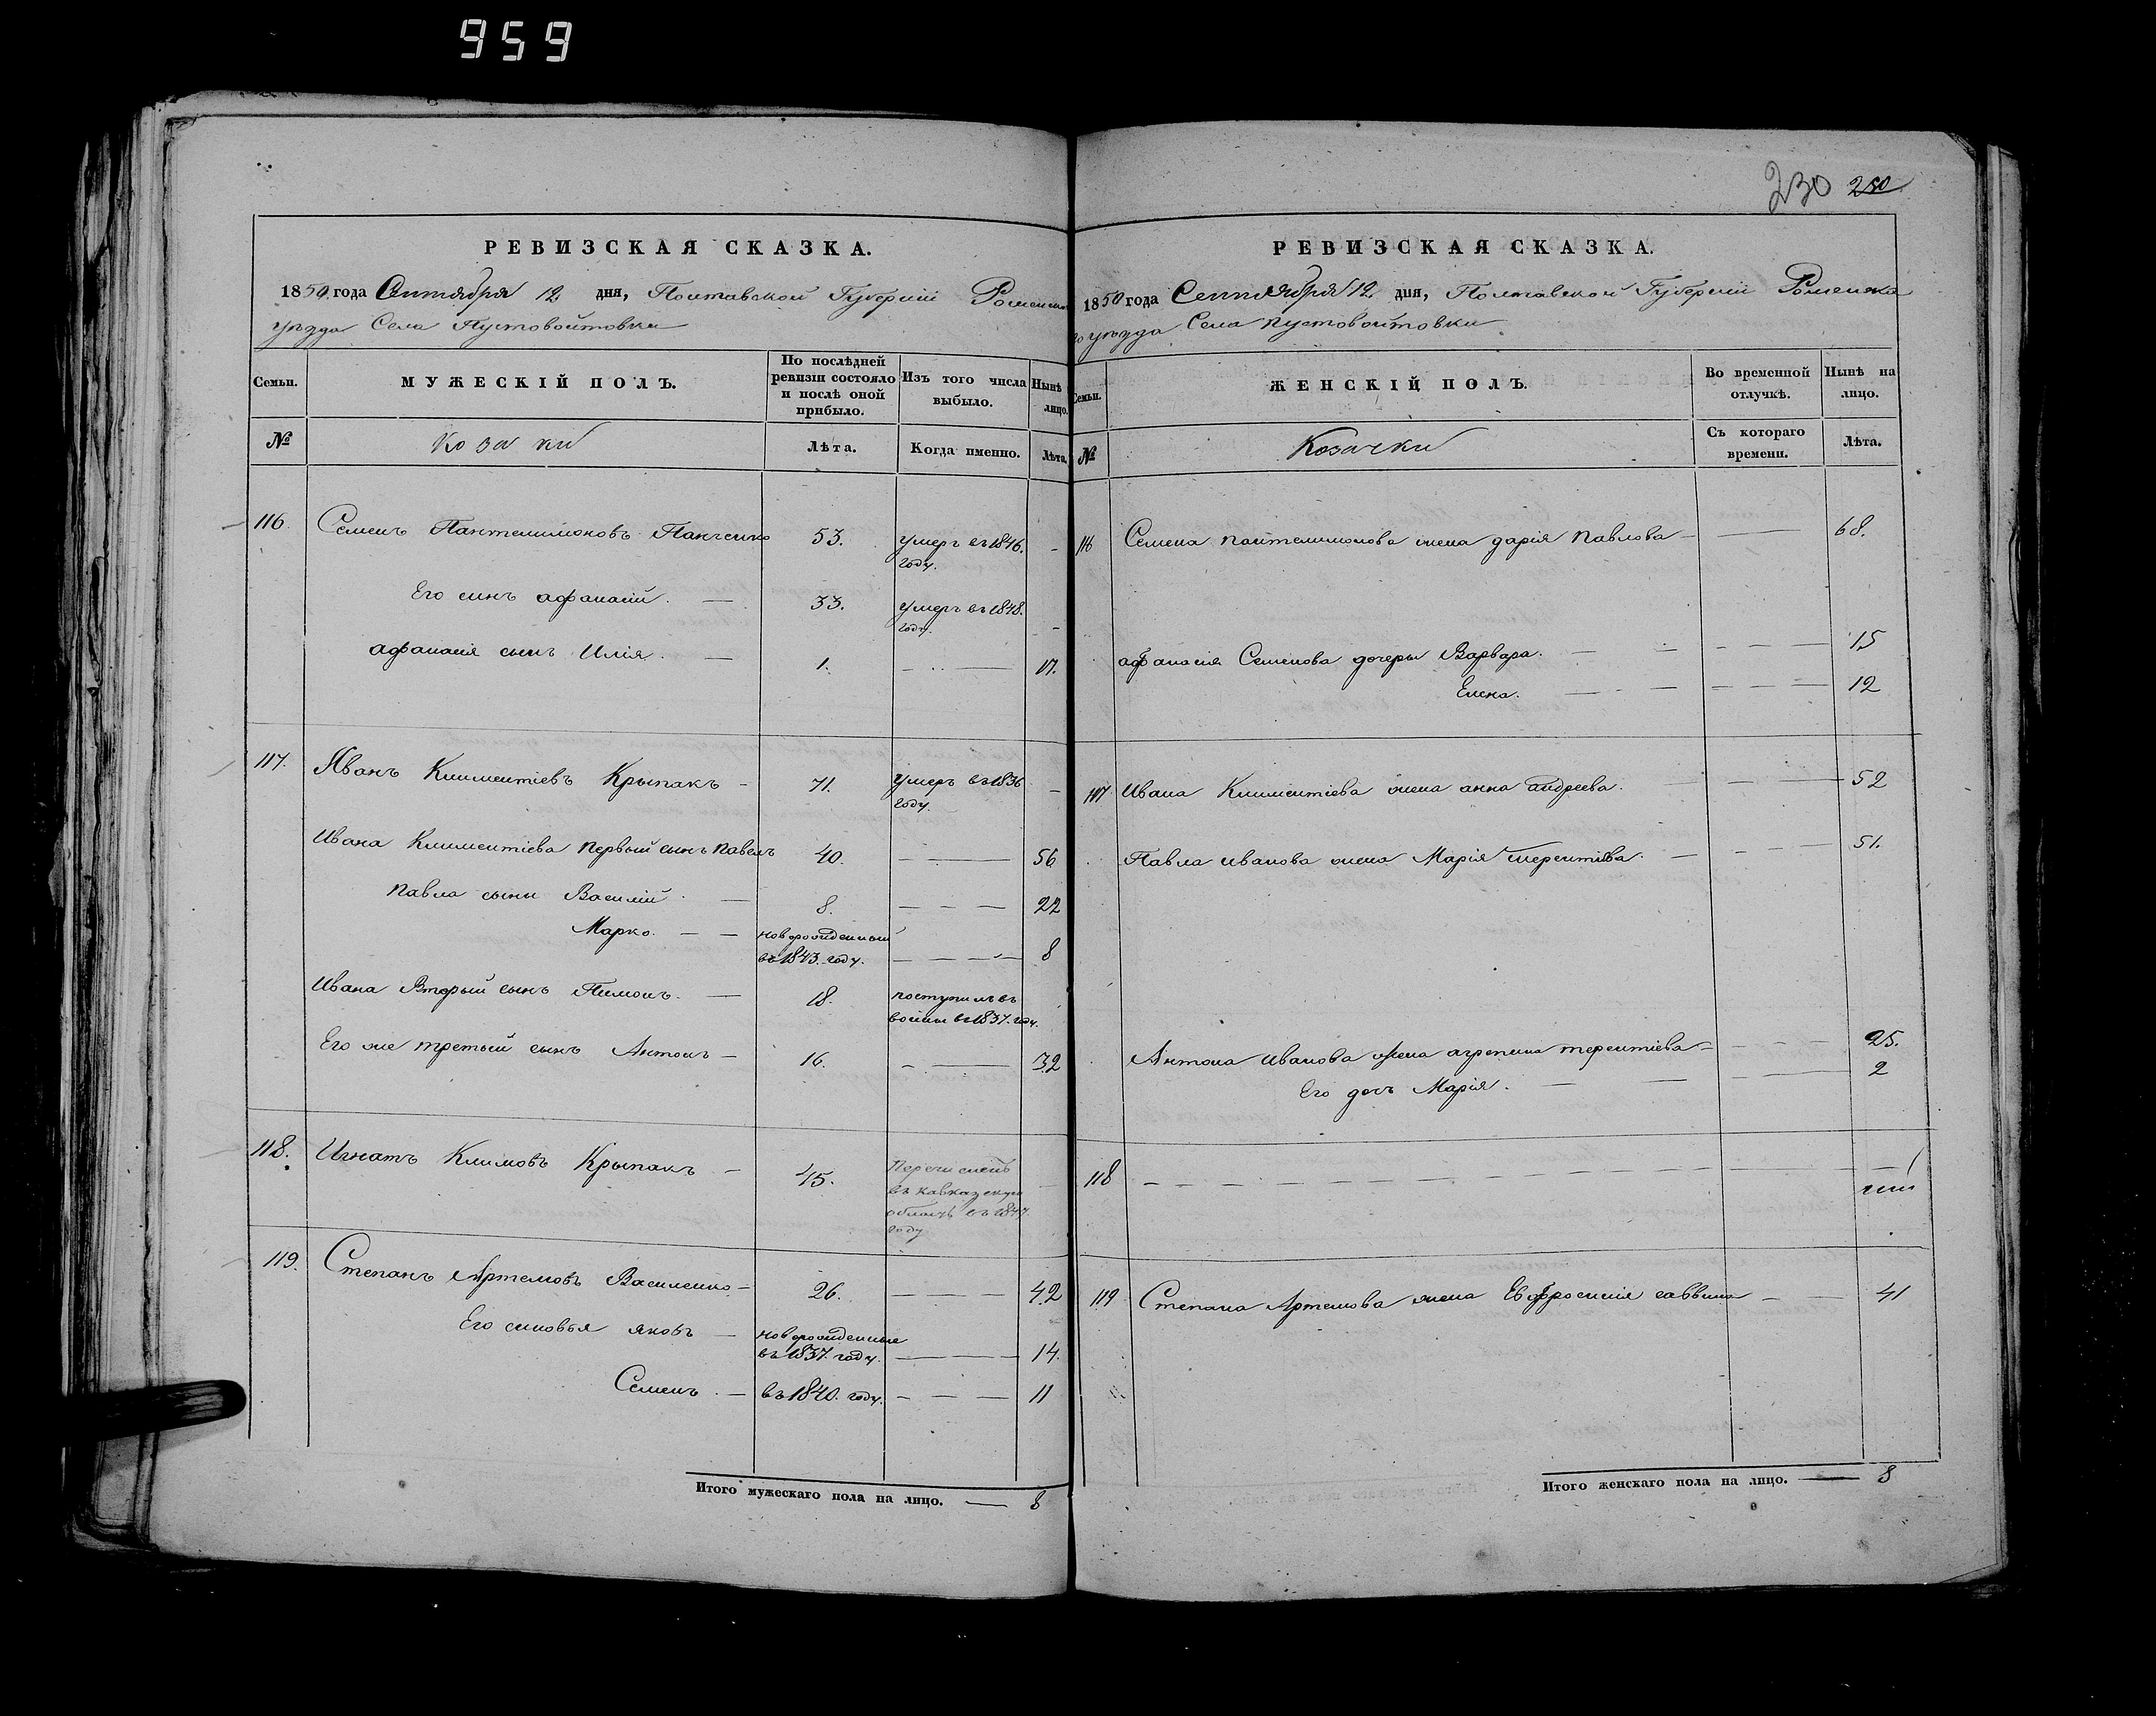 959
230 250
РЕВИЗСКАЯ СКАЗКА.
1850 года Сентября 12 дня, Полтавской Губерніи Роменска
уѣзда Села Пустовойтовки
Семьи. МУЖЕСКІЙ ПОЛЪ. По послѣдней ревизіи состояло и послѣ оной прибыло. Изъ того числа выбыло. Нынѣ лицо.
№ Козаки Лѣта. Когда именно. Лѣта.
116. Семенъ Пантелимоновъ Панченко 53. умеръ въ 1846. году. -
Его синъ афанасій. — 33. умеръ въ 1848. году. -
афанасія сынъ Илія. — 1. — 17.
117. Яванъ Климентіевъ Крыпакъ - 71. умеръ въ 1836 году. -
Ивана Климентіева первый сынъ Павелъ 40. — 56
Павла сыны Василій. — 8. — 22
Марко. — новорожденный въ 1843. году. — 8
Ивана Вторый сынъ Пимонъ. — 18. поступилъ въ воины въ 1837. году.
Его же третый сынъ Антонъ — 16. — 32
118. Игнатъ Климовъ Крыпакъ - 45. Перечисленъ въ кавказскую область въ 1847. году
119. Степанъ Артемовъ Василенко - 26. — 42
Его сыновья яковъ — новорожденные въ 1837. году. — 14.
Семенъ. — въ 1840. году. — 11
Итого мужескаго пола на лицо. — 8
РЕВИЗСКАЯ СКАЗКА.
1850 года Сентября 12 дня, Полтавской Губерніи Роменска
го уѣзда Села пустовойтовки
Семьи. ЖЕНСКІЙ ПОЛЪ. Во временной отлучкѣ. Нынѣ на лицо.
№ Козачки Съ котораго времени. Лѣта.
116 Семена пантелимонова жена дарія павлова — 68.
афанасія Семенова дочеры Варвара. — 15
Елена. — 12
117 Ивана Климентіева жена анна андреева. — 52
Павла иванова жена Марія терентіева. — 51.
Антона иванова жена агрепина терентіева — 25.
Его дочъ Марія. — 2
118 —
119 Степана Артемова жена Евфросинія саввина — 41
Итого женскаго пола на лицо. — 8